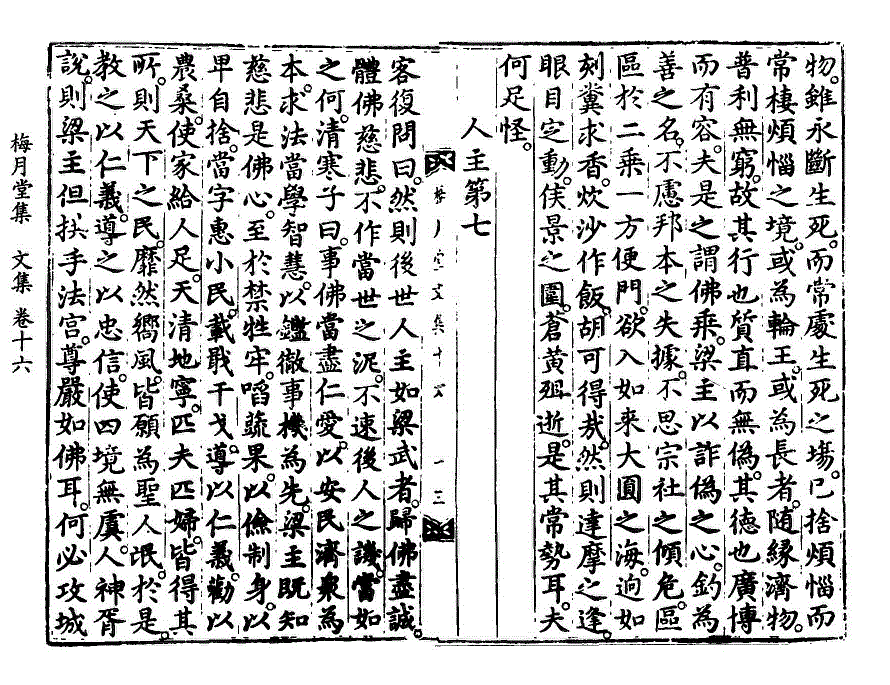 物。雖永斷生死。而常處生死之場。已捨煩惱而
常棲煩惱之境。或為輪王。或為長者。隨緣濟物。
普利無窮。故其行也質直而無偽。其德也廣博
而有容。夫是之謂佛乘。梁主以詐偽之心。釣為
善之名。不慮邦本之失據。不思宗社之傾危。區
區於二乘一方便門。欲入如來大圓之海。逈如
刻糞求香。炊沙作飯。胡可得哉。然則達摩之逢。
眼目定動。侯景之圍。蒼黃殂逝。是其常勢耳。夫
何足怪。
人主第七
梅月堂文集十六 一三
客復問曰。然則後世人主如梁武者。歸佛盡誠。
體佛慈悲。不作當世之泥。不速後人之譏。當如
之何。清寒子曰。事佛當盡仁愛。以安民濟衆為
本。求法當學智慧。以鑑徹事機為先。梁主既知
慈悲是佛心。至於禁牲牢。㗖蔬果。以儉制身。以
卑自捨。當字惠小民。載戢干戈。導以仁義。勸以
農桑。使家給人足。天清地寧。匹夫匹婦。皆得其
所。則天下之民。靡然嚮風。皆願為聖人氓。於是。
教之以仁義。導之以忠信。使四境無虞。人神胥
說。則梁主但拱手法宮。尊嚴如佛耳。何必攻城
梅月堂集 文集 卷十六